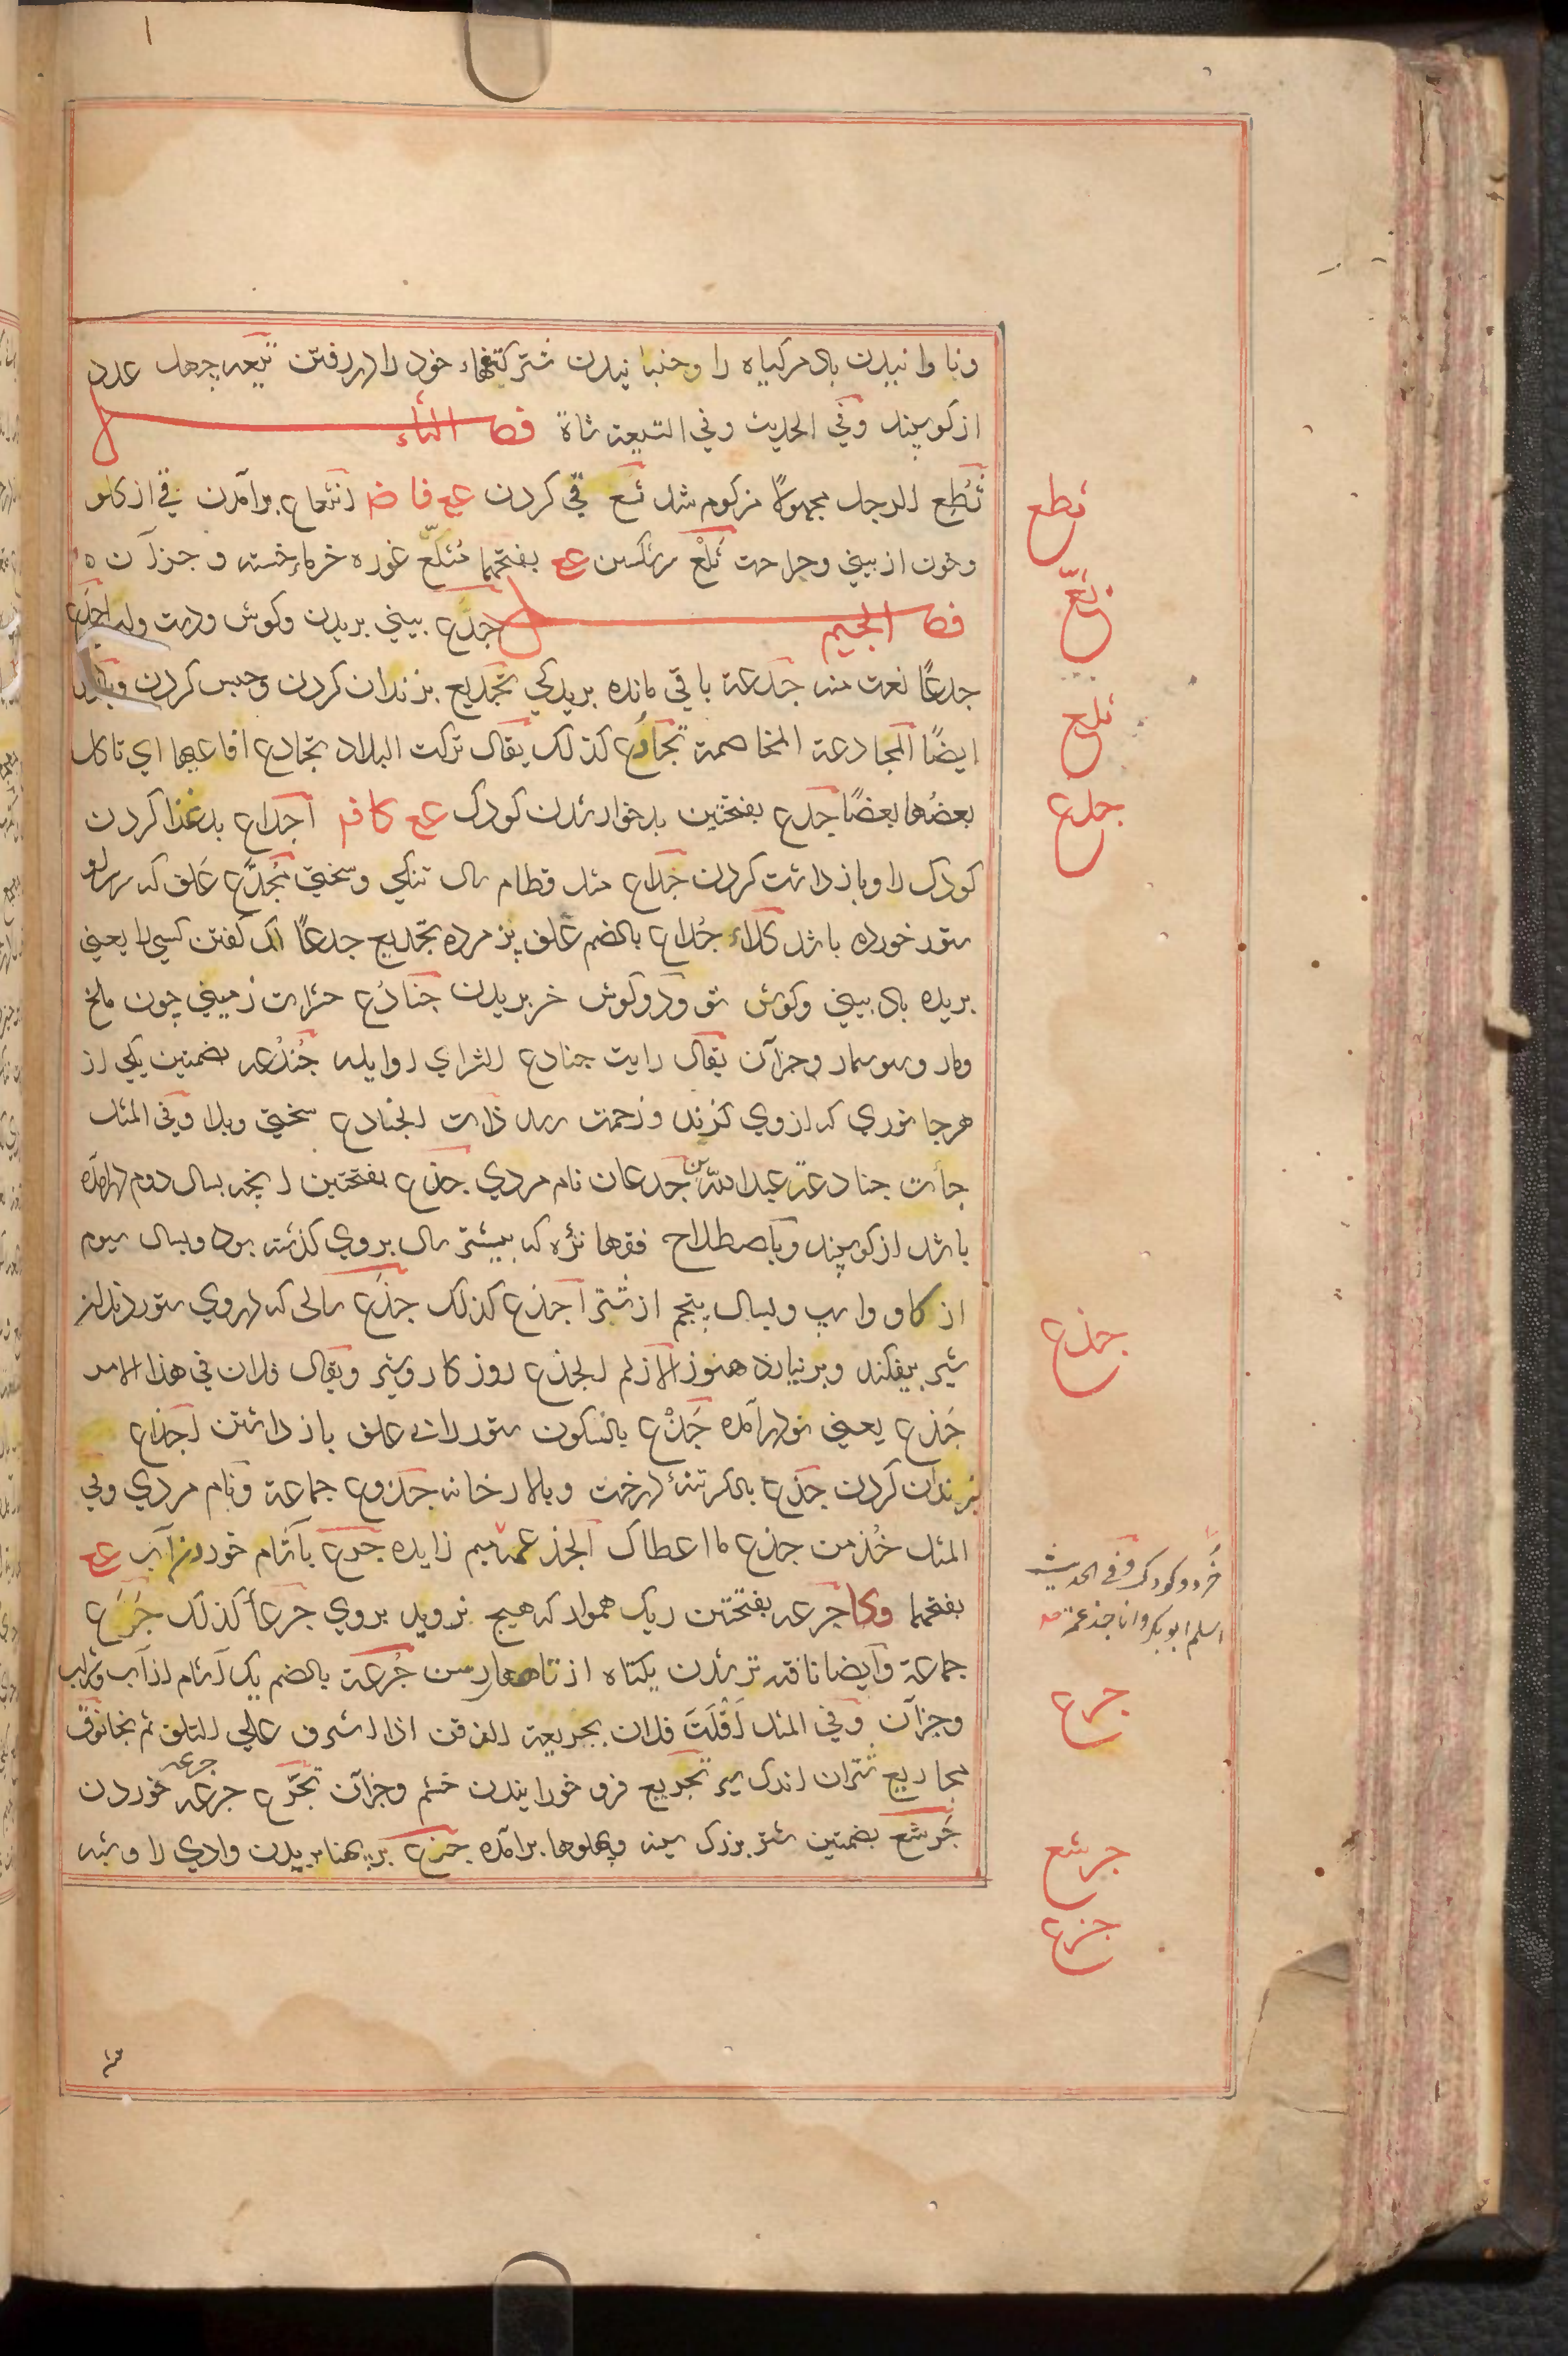 وناوانیدن باد مر کیاه را وجنبانیدن شتر کتفهاء خود را در رفتن تیعه چهل عدد
از کوسپند وفي الحدیث وفي التیعة شاة فصل الثاء
ثُطِع الرجل مجهولاً مزکوم شد ثع قي کردن عع فا ض انثعاع برآمدن قي از کلو
وخون از بیني وجراحت ثَلْغ سرشکستن عع بفتحهما مُثلّغ غوره خرماء خسته و جز آن
فصل الجیم جدع بیني بریدن وکوش ودست
جدعًا نعت منه جدعة باقي مانده بریدکي تجدیع بزندان کردن وحبس کردن
ایضًا المجادعة المخاصمة تجادع کذلک یقال ترکت البلاد تجادع افاعیها اي تاکل
بعضُها بعضًا جدع بفتحتین بدخوار شدن کودک عع کا فر اجداع بدغذا کردن
کودک را وباز داشت کردن جداع مثل قطام سال تنکي وسختي مُجدَّع علف که سر او
ستور خورده باشد کلاء جُداع بالضم علف پژمرده تجدیع جدعًا لک کفتن کسي را یعني
بریده باد بیني وکوش تو وکوش خر بریدن جنادع حشرات زمیني چون ملخ
ومار وسوسمار وجز آن یقال رایت جنادع الشر اي اوایله جُندُعه بضمتین یکي از
هر جانوري که از وي کزند وزحمت رسد ذات الجنادع سختي وبلا وفي المثل
جائت جنادعة عبدالله بن جدعان نام مردي جذع بفتحتین انچه بسال دوم در آمده
باشد از کوسپند وباصطلاح فقها نژه که بیشتر سال بروي کذشته بود وبسال سیوم
از کاو واسپ وبسال پنجم از شتر اجذع کذلک جذع سالی که در وي ستور دندان
شیر بیفکند وبر نیارد هنوز الازلم الجذع روزکار وشیر ویقال فلان في هذا الامر
جَذع یعني نو در آمده جَذْع بالسکون ستور را بے علف باز داشتن اجذاع
بزندان کردن جذع بالکسر تنهٔ درخت وبالار خانه جذوع جماعة ونام مردي وفي
المثل خُذ من جذع ما اعطاک الجذعمه میم زایده جرع بآشام خوردن آب عع
بفتحهما وکا جرعه بفتحتین ریک هموار که هیچ نروید بروي جرعأ کذلک جَرَع
جماعة وایضا تافته تر شدن یکتاه از تاهاء رسن جُرعة بالضم یک آشام از آب وشراب
وجز آن وفي المثل اَفْلَتَ فلان بجریعة الذقن اذا اشرف علي التلف ثم نجا نوق
مجاریع شتران اندک شیر تجریع فرو خورانیدن خشم وجز آن تجرّع جرعه جرعه خوردن
جُرشُع بضمتین شتر بزرک سینه وپهلوها برآمده جزع بر پهنا بریدن وادي را وشبه
ثطع
ثعّ
ثلغ
جدع
جذع
خرد وکودک وفی الحدیث
اسلم ابوبکر وانا جذعمة صح
جرع
جرشع
جزع